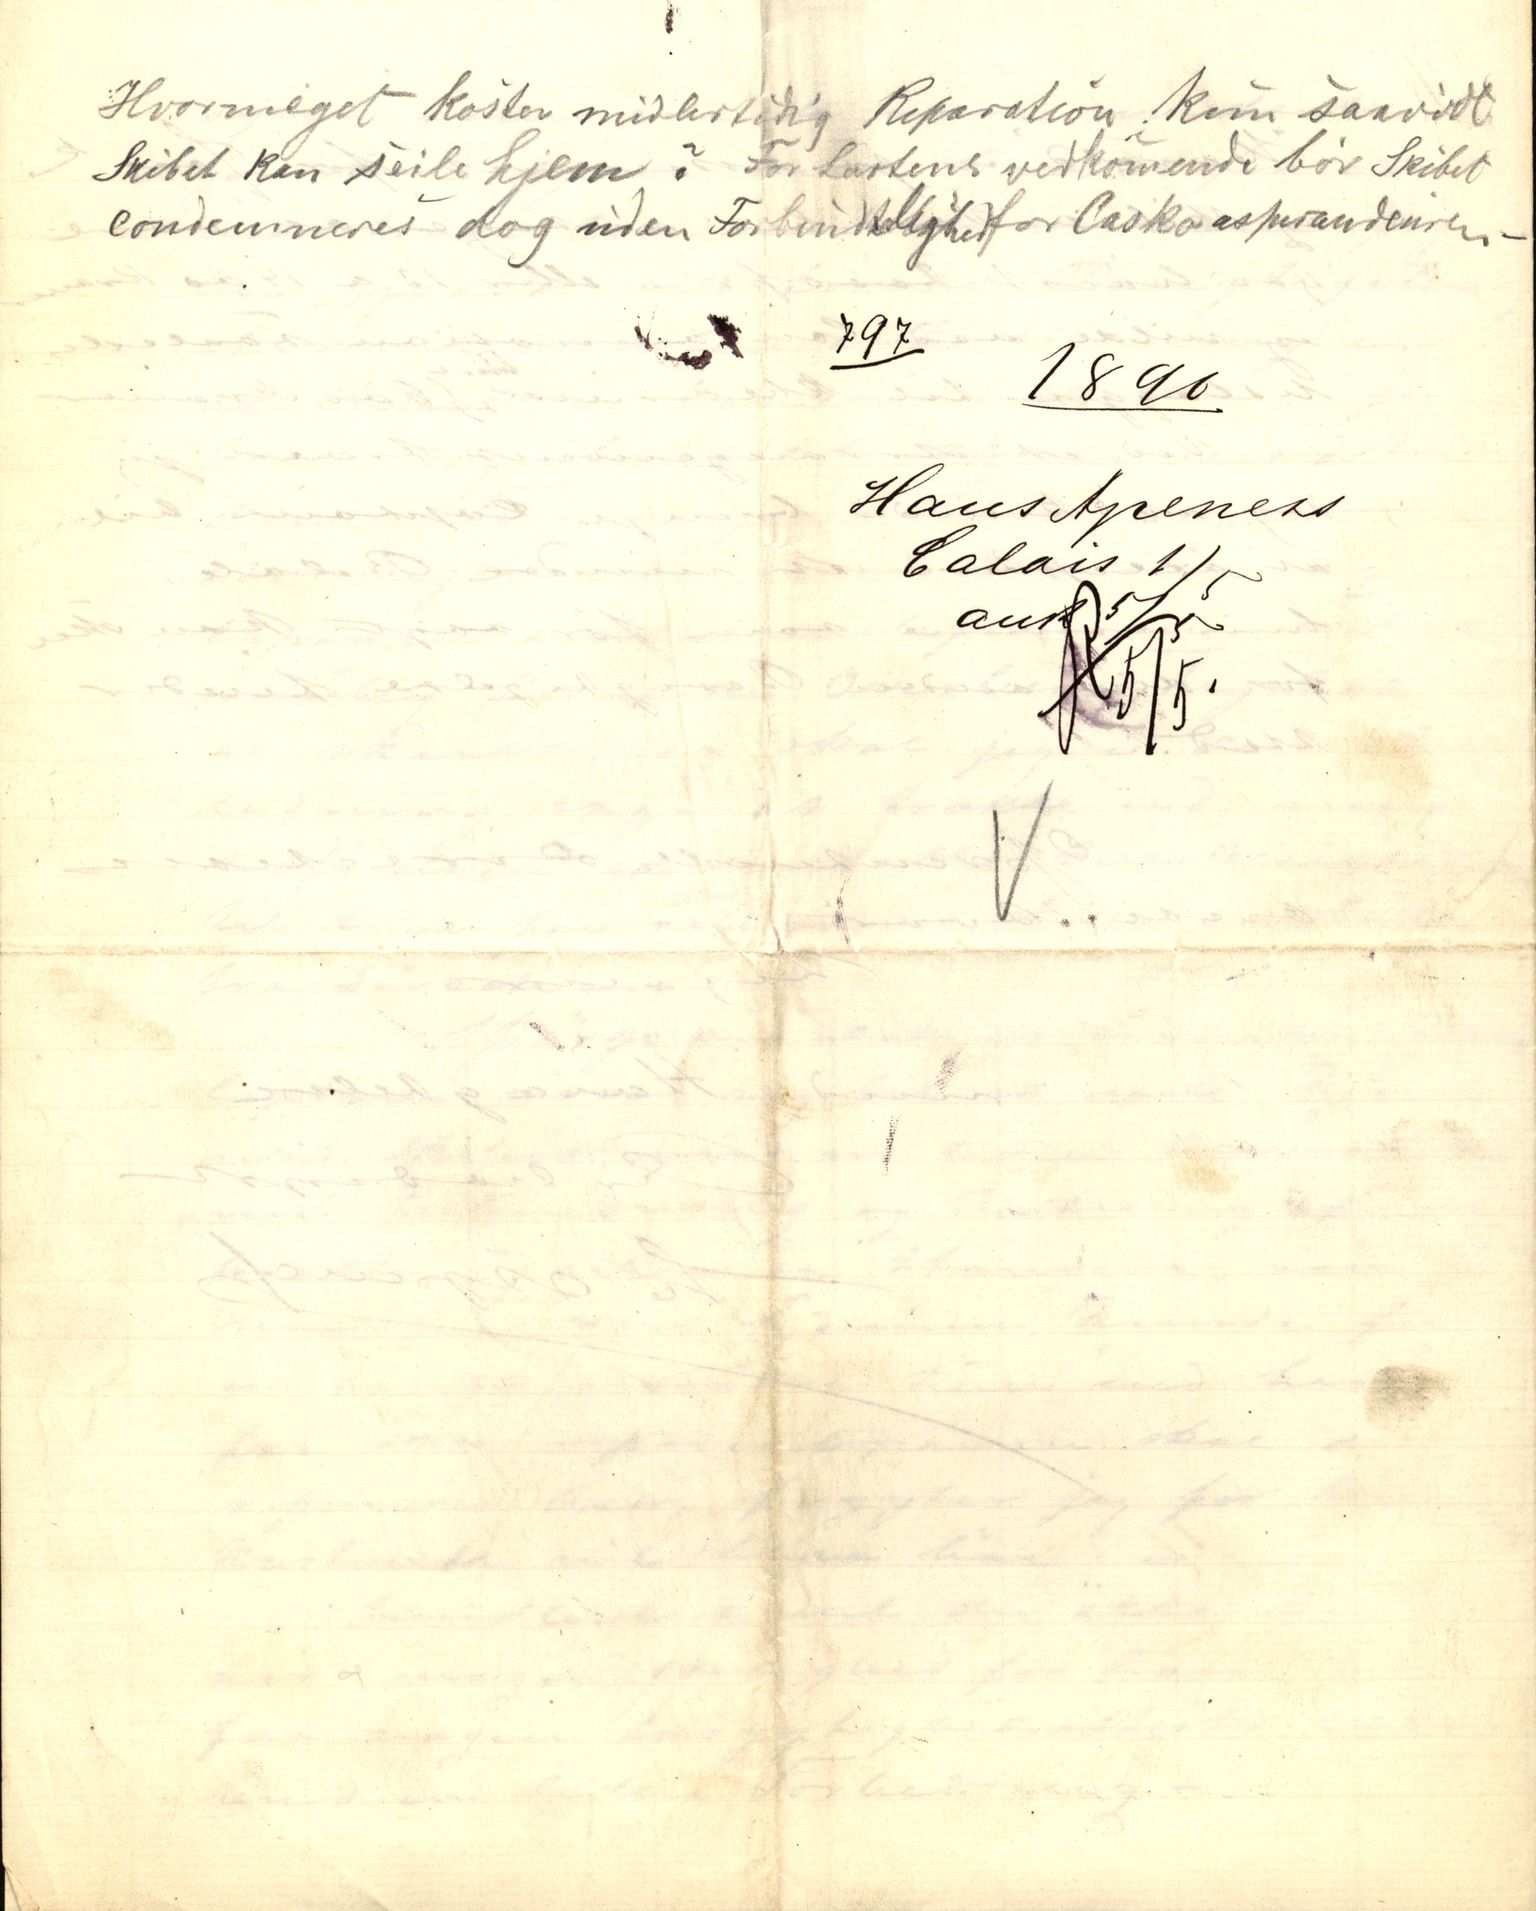 Hvormeget koster midlertidig Reparation kun saavidt
Skibet kan seile hjem? For Lastens vedkommende bör Skibet
condemneres dog uden Forbindtlighed for Casko assurandeuren –
797
1890
Hans Apeness
Calais 1/5
ank 5/5
5/5.
V